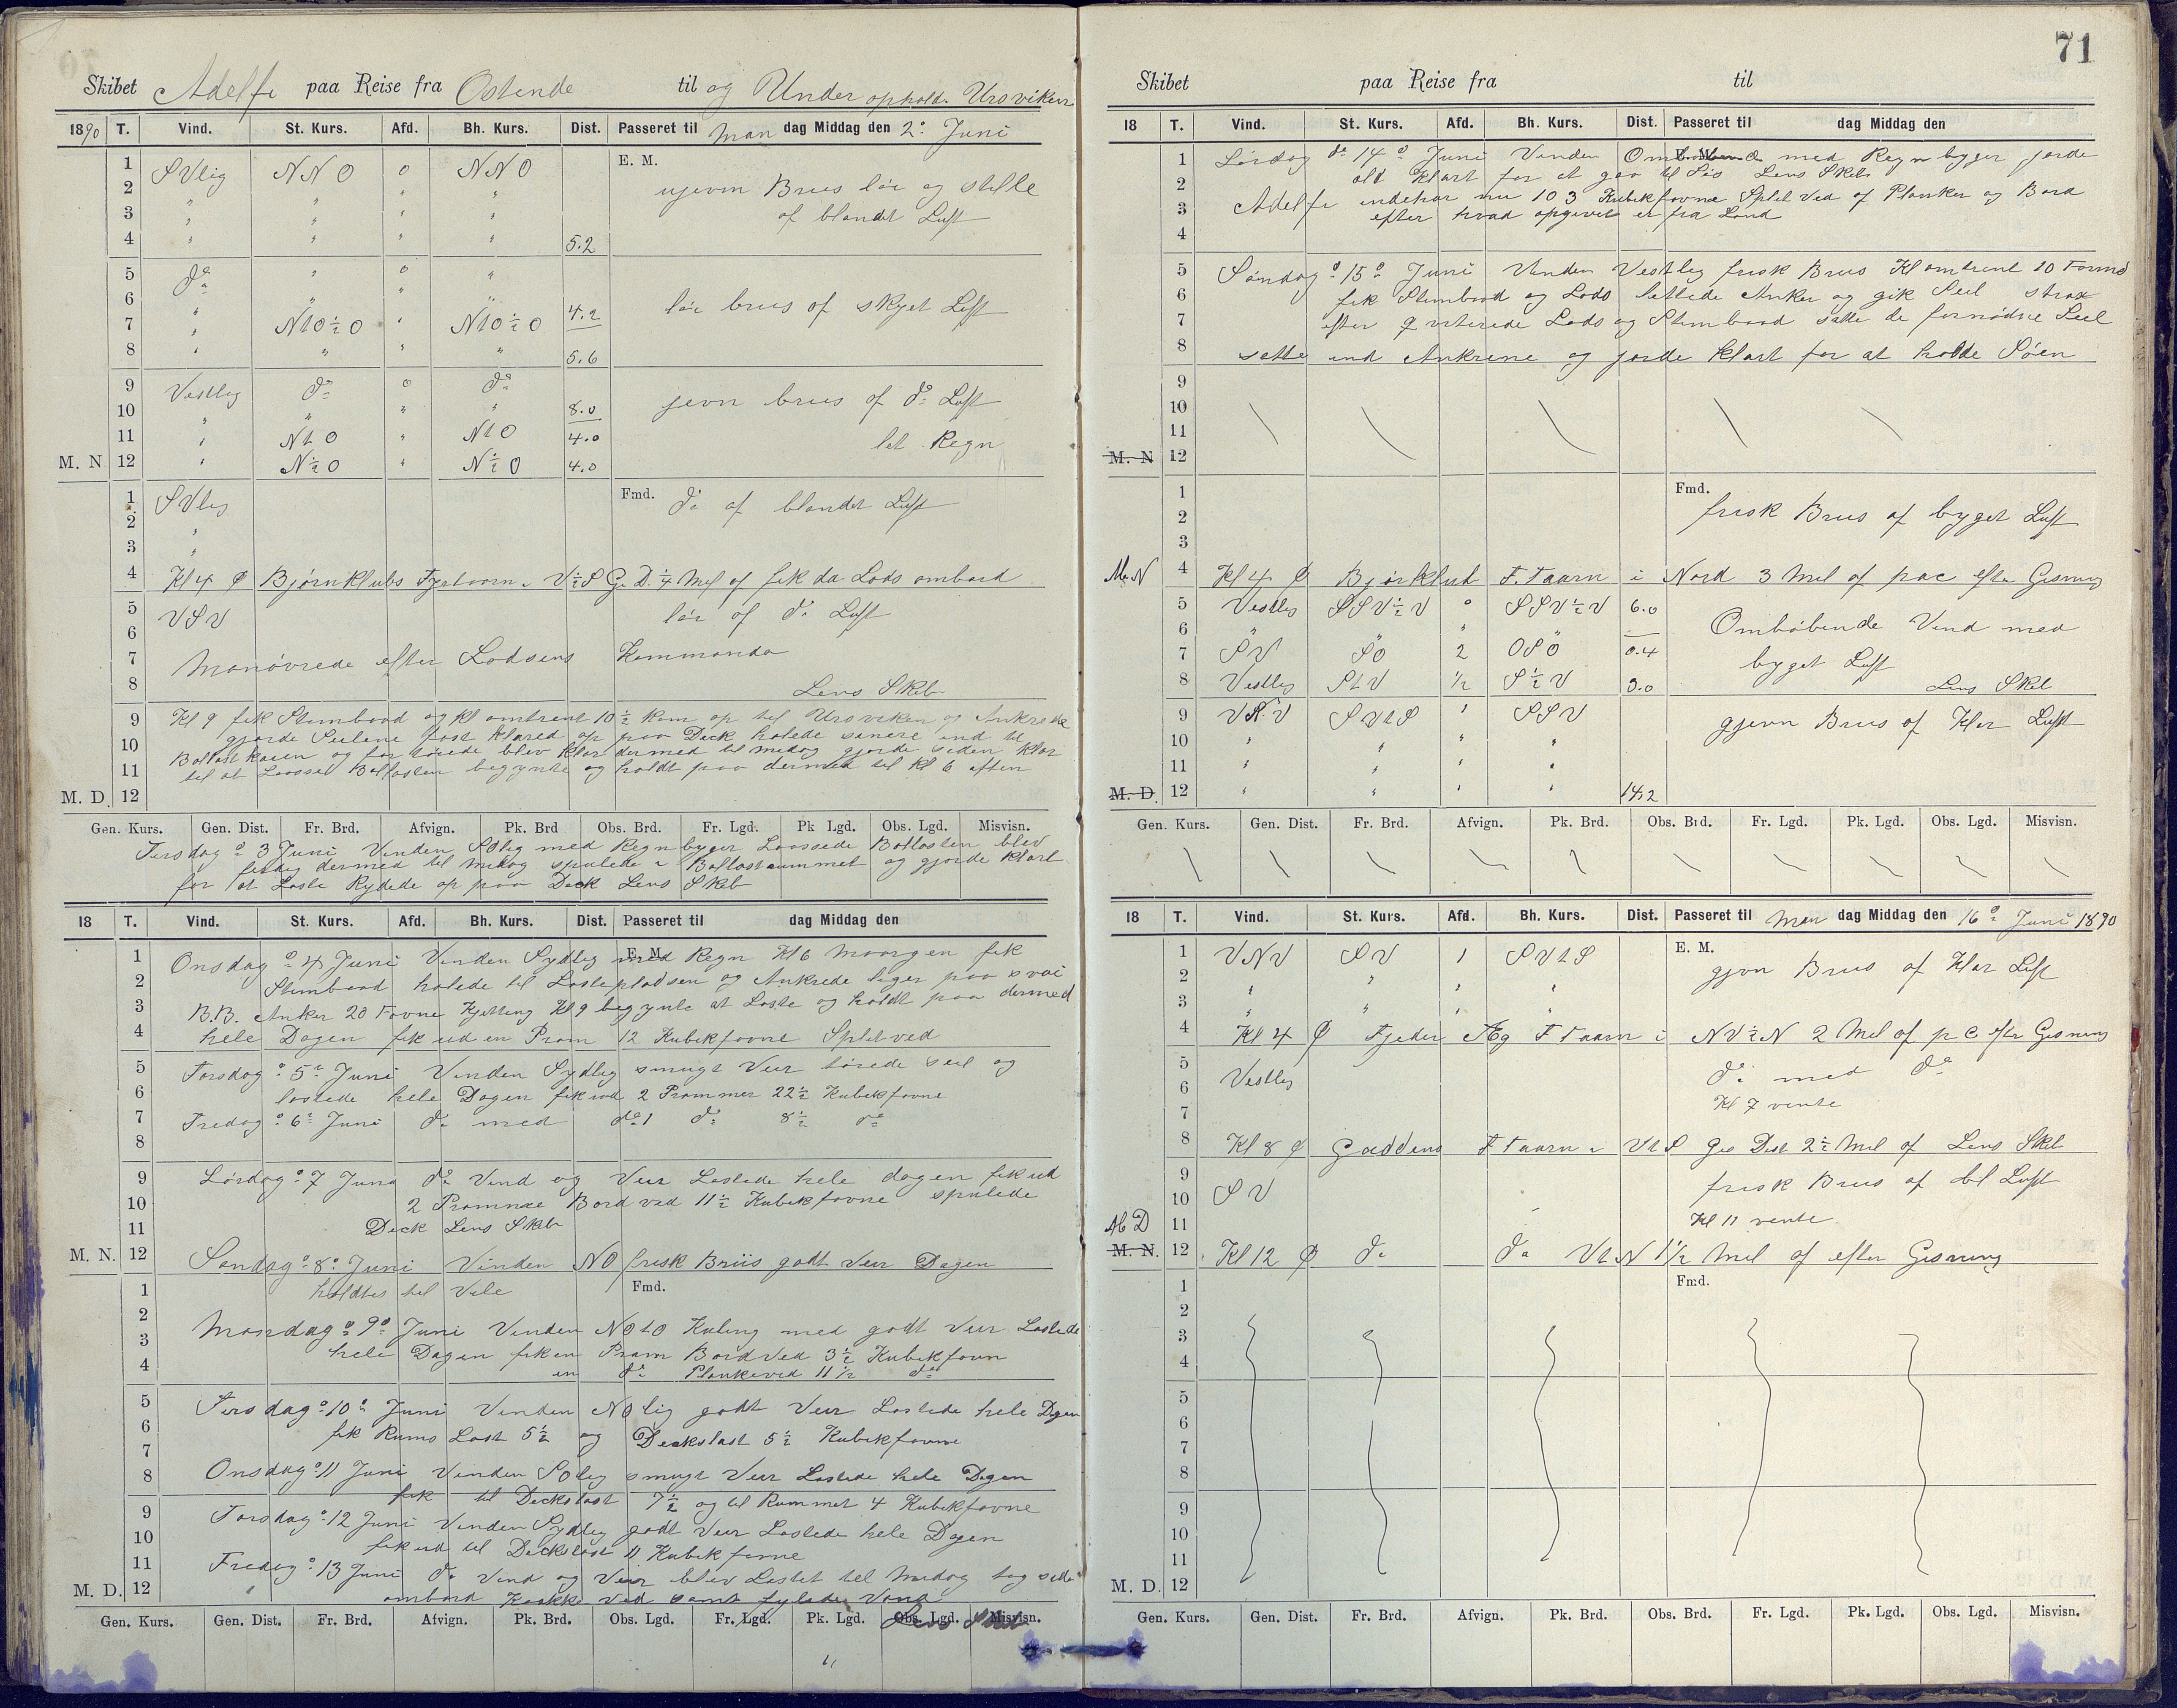 Skibet Adelfi paa Reise fra Ostende til og Under ophold. Ursviken
1890 T. Vind. St. Kurs. Afd. Bh. Kurs. Dist. Passeret til Man dag Middag den 2º Juni
E. M.
1 SVlig NNO 0 NNO
2 " " " " ujevn Briis lør og stille
3 " " " " af blandt Luft
4 " " " " 5.2
5 dº " 0 "
6 " " " " 4.2 lør briis af skyet Luft
7 " NtO½O " NtO½O
8 " " " " 5.6
9 Vestlig dº 0 dº
10 " " " " 8.0 jevn briis af dº Luft
11 " NtO " NtO 4.0 let Regn
M. N 12 " N½O " N½O 4.0
1 SVlig Fmd. dº af blandet Luft
2 "
3 "
4 Kl 4 Ø Bjørnklubs Fyrtaarn i V½S G. D. ¼ Mil af fik da Lods ombord
5 VSV lør af dº Luft
6
7 Manøvrede efter Lodsens Kommando
8 Lens Skib
9 Kl 9 fik Stimbaad og kl omtrent 10½ kom op til Ursviken og Ankrede
gjorde Seilene fast klared op paa Deck halede senere ind til
10 Ballast kaien og for tøiede blev klar dermed til midag gjorde siden klar
11 til at Loosse Ballasten begynte og holdt paa dermed til Kl 6 aften
M. D. 12
Gen. Kurs. Gen. Dist. Fr. Brd. Afvign. Pk. Brd Obs. Brd. Fr. Lgd. Pk Lgd. Obs. Lgd. Misvisn.
Tirsdag º 3 Juni Vinden SOlig med Regnbyger Loossede Ballasten blev
ferdig dermed til midag spulede i Ballastrummet og gjorde klart
for at Laste Rydede op paa Deck Lens Skib
18 T. Vind. St. Kurs. Afd. Bh. Kurs. Dist. Passeret til dag Middag den
E. M.
1 Onsdag º 4 Juni Vinden Sydlig med Regn Kl 6 Morgen fik
2 Stimbaad halede til Lastepladsen og Ankrede liger paa svai
3 B.B. Anker 20 Favne Kjetting Kl 9 begynte at Laste og holdt paa dermed
4 hele Dagen fik ud en Pram 12 Kubikfavne Splitved
5 Torsdag º 5º Juni Vinden Sydlig smugt Veir tørede seil og
6 lastede hele Dagen fik ud 2 Prammer 22½ Kubikfavne
7 Fredag º 6º Juni dº med dº 1 dº 8½ dº
8
9 Lørdag º 7 Juni dº Vind og Veir Lastede hele dagen fik ud
10 2 Prammer Bord ved 11½ Kubikfavne spulede
11 Deck Lens Skib
M. N. 12 Søndag º 8º Juni Vinden NO frisk Briis godt Veir Dagen
1 holdtes til Vile Fmd.
2
3 Mandag º 9º Juni Vinden NOtO Kuling med godt Veir Lastede
hele Dagen fik en Pram Bordved 3½ Kubikfavn
4 en dº Plankeved 11½ dº
5 Tirsdag º 10º Juni Vinden NOlig godt Veir Lastede hele Dagen
6 fik Rums Last 5½ og Deckslast 5½ Kubikfavne
7
8 Onsdag º 11 Juni Vinden SOlig smugt Veir Lastede hele Dagen
fik til Deckslast 7½ og til Rummet 4 Kubikfavne
9 Torsdag º 12 Juni Vinden Sydlig godt Veir Lastede hele Dagen
10 fik ud til Deckslast 11 Kubikfavne
11 Fredag º 13 Juni dº Vind og Veir blev Lastet til Midag tog
M. D. 12 ombord Kokke Ved samt fylede Vand
Lens Skib
Gen. Kurs. Gen. Dist. Fr. Brd. Afvign. Pk. Brd. Obs. Lgd. Fr. Lgd. Pk. Lgd. Obs. Lgd. Misvisn.
71
Skibet paa Reise fra til
18 T. Vind. St. Kurs. Afd. Bh. Kurs. Dist. Passeret til dag Middag den
E. M.
1 Lørdag dº 14º Juni Vinden Omløbende med Regn byger jorde
2 alt Klart for at gaa til Søs Lens Skib
3 Adelfi indehar nu 103 Kubikfavne Split Ved af Planker og Bord
efter hvad opgivet er fra Land
4
5 Søndag º 15º Juni Vinden Vestlig frisk Briis Kl omtrent 10 Formd
6 fik Stimbaad og Lods lettede Anker og gik Seil strax
7 efter qviterede Lods og Stimbaad satte de fornødne Seil
8 satte ind Ankrene og jorde klart for at holde Søen
9
10
11
M. N 12
1 Fmd. frisk Briis af byget Luft
2
3
M. N 4 Kl 4 Ø Bjørklub F. Taarn i Nord 3 Mil af pac efter Gisning
5 Vestlig SSV½V 0 SSV½V 6.0
6 " " " " Omløbende Vind med
7 SV SO 2 OSO 0.4 byget Luft
8 Vestlig StV ½ S½V 3.0 Lens Skib
9 VNV SVtS 1 SSV gjevn Briis af Klar Luft
10 " " " "
11 " " " "
M. D. 12 " " " " 14.2
Gen. Kurs. Gen. Dist. Fr. Brd. Afvign. Pk. Brd. Obs. Brd. Fr. Lgd. Pk. Lgd. Obs. Lgd. Misvisn.
18 T. Vind. St. Kurs. Afd. Bh. Kurs. Dist. Passeret til Man dag Middag den 16º Juni 1890
E. M.
1 VNV SV 1 SVtS gjvn Briis af Klar Luft
2 " " " "
3 " " " "
4 Kl 4 Ø Fjeder Æg F Taarn i NV½N 2 Mil af p C efter Gisning
5 Vestlig dº med dº
6
7 Kl 7 vente
8 Kl 8 Ø Gaddens F Taarn i VtS Gis Dist 2½ Mil af Lens Skib
9 SV frisk Briis af bl Luft
10
M D 11 Kl 11 vente
M. N. 12 Kl 12 Ø dº dº VtN 1½ Mil af efter Gisning
1 Fmd.
2
3
4
5
6
7
8
9
10
11
M. D. 12
Gen. Kurs. Gen. Dist. Fr. Brd. Afvign. Pk. Brd. Obs. Brd. Fr. Lgd. Pk. Lgd. Obs. Lgd. Misvisn.